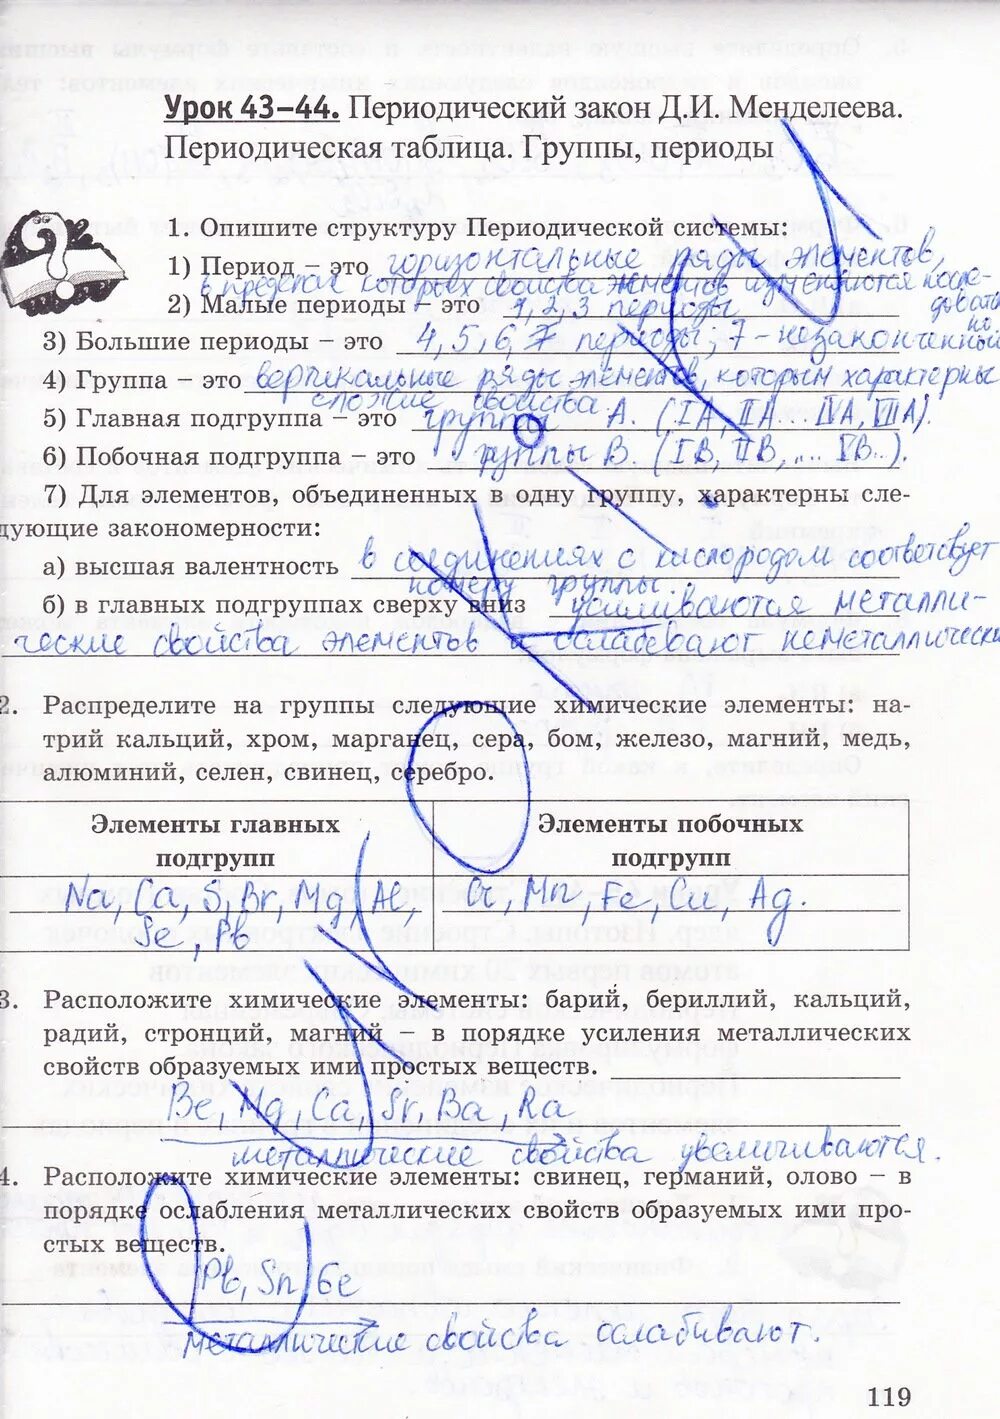 Урок 43–44. Периодический закон Д.И. Менделеева.
Периодическая таблица. Группы, периоды
1. Опишите структуру Периодической системы:
1) Период – это горизонтальные ряды элементов,
в пределах которых свойства элементов изменяются после-
довательно.
2) Малые периоды – это 1, 2, 3 периоды
3) Большие периоды – это 4, 5, 6, 7 периоды; 7 – незаконченный
4) Группа – это вертикальные ряды элементов, которым характерны
свойства
5) Главная подгруппа – это группы А. (IA, IIA... IVA, VIIA).
6) Побочная подгруппа – это группы В. (IB, IIB, .... VB..).
7) Для элементов, объединенных в одну группу, характерны сле-
дующие закономерности:
а) высшая валентность в соединениях с кислородом соответствует
номеру группы.
б) в главных подгруппах сверху вниз усиливаются металли-
ческие свойства элементов и ослабевают неметаллически
2. Распределите на группы следующие химические элементы: на-
трий кальций, хром, марганец, сера, бом, железо, магний, медь,
алюминий, селен, свинец, серебро.
Элементы главных подгрупп
Элементы побочных подгрупп
Na, Ca, S, Br, Mg, Al,
Se, Pb
Cr, Mn, Fe, Cu, Ag.
3. Расположите химические элементы: барий, бериллий, кальций,
радий, стронций, магний – в порядке усиления металлических
свойств образуемых ими простых веществ.
Be, Mg, Ca, Sr, Ba, Ra
металлические свойства увеличиваются.
4. Расположите химические элементы: свинец, германий, олово – в
порядке ослабления металлических свойств образуемых ими про-
стых веществ.
Pb, Sn, Ge
Металлические свойства ослабивают.
119